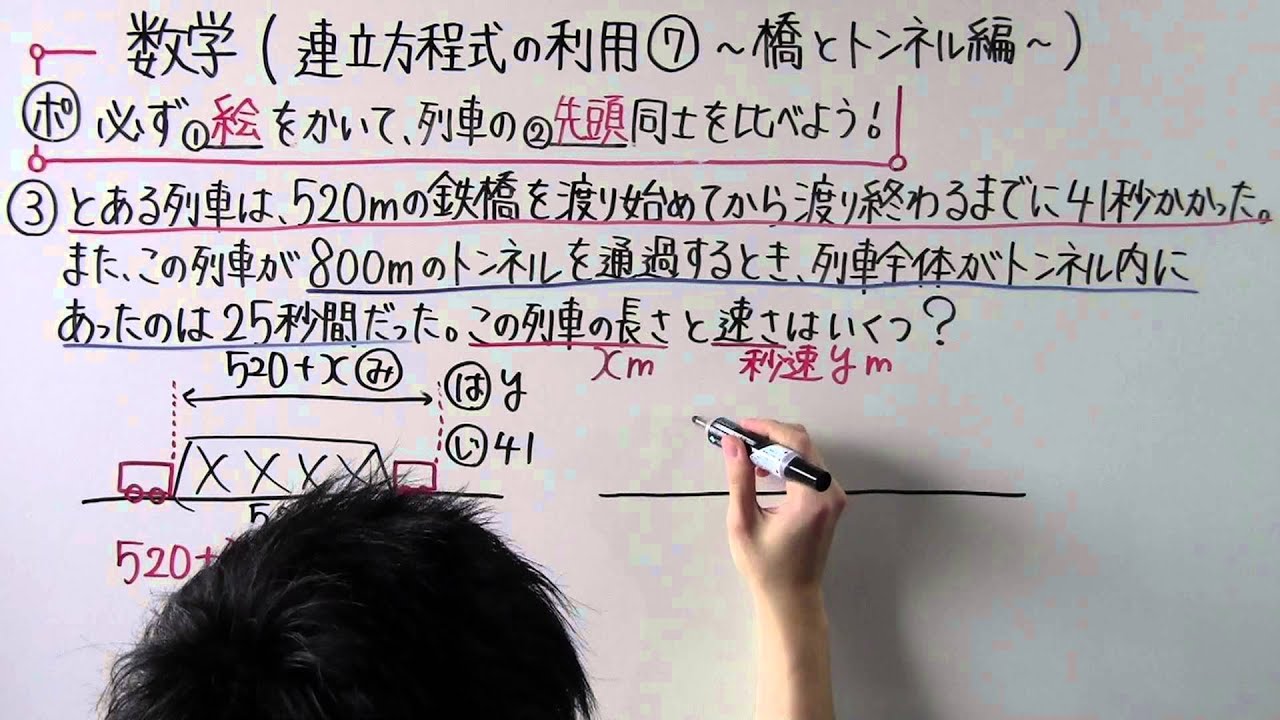 数学(連立方程式の利用⑦～橋とトンネル編～)
ポ 必ず①絵をかいて、列車の②先頭同士を比べよう!
③とある列車は、520mの鉄橋を渡り始めてから渡り終わるまでに41秒かかった。
また、この列車が800mのトンネルを通過するとき、列車全体がトンネル内に
あったのは25秒間だった。この列車の長さと速さはいくつ?
xm 秒速ym
520+x み
は y
じ 41
520+